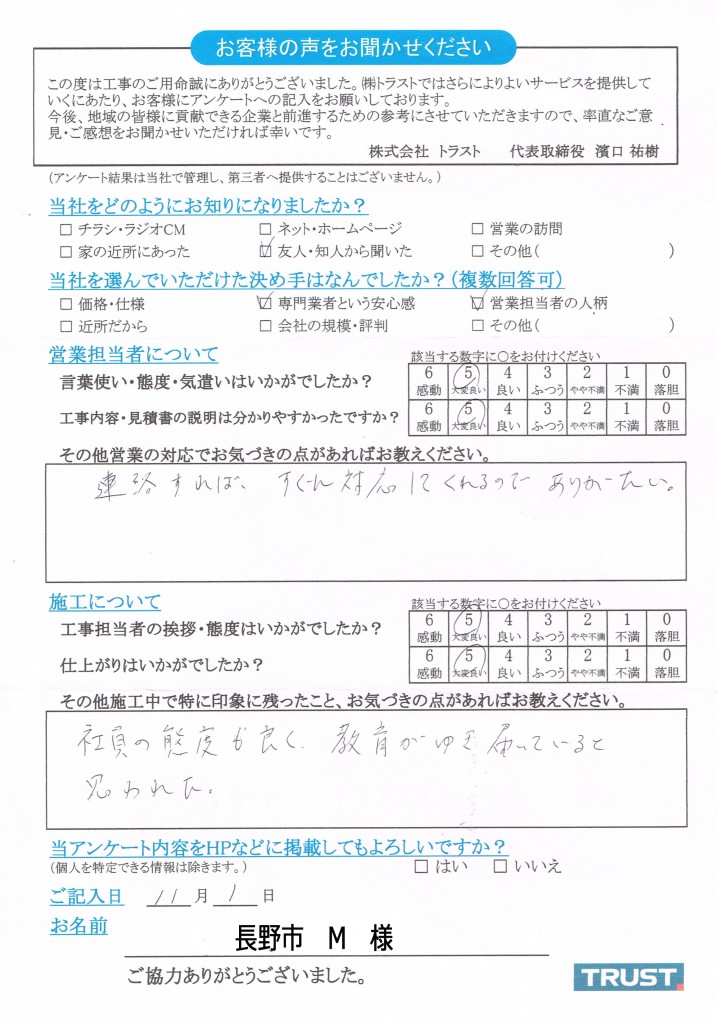 お客様の声をお聞かせください
この度は工事のご用命誠にありがとうございました。㈱トラストではさらによりよいサービスを提供して
いくにあたり、お客様にアンケートへの記入をお願いしております。
今後、地域の皆様に貢献できる企業と前進するための参考にさせていただきますので、率直なご意
見・ご感想をお聞かせいただければ幸いです。
株式会社 トラスト 代表取締役 濱口 祐樹
(アンケート結果は当社で管理し、第三者へ提供することはございません。)
当社をどのようにお知りになりましたか?
□ チラシ・ラジオCM □ ネット・ホームページ □ 営業の訪問
□ 家の近所にあった ☑ 友人・知人から聞いた □ その他( )
当社を選んでいただけた決め手はなんでしたか?(複数回答可)
□ 価格・仕様 ☑ 専門業者という安心感 ☑ 営業担当者の人柄
□ 近所だから □ 会社の規模・評判 □ その他( )
営業担当者について 該当する数字に○をお付けください
言葉使い・態度・気遣いはいかがでしたか? 6 5 4 3 2 1 0
感動 大変良い 良い ふつう やや不満 不満 落胆
工事内容・見積書の説明は分かりやすかったですか? 6 5 4 3 2 1 0
感動 大変良い 良い ふつう やや不満 不満 落胆
その他営業の対応でお気づきの点があればお教えください。
連絡すれば、すぐに対応してくれるので ありがたい。
施工について 該当する数字に○をお付けください
工事担当者の挨拶・態度はいかがでしたか? 6 5 4 3 2 1 0
感動 大変良い 良い ふつう やや不満 不満 落胆
仕上がりはいかがでしたか? 6 5 4 3 2 1 0
感動 大変良い 良い ふつう やや不満 不満 落胆
その他施工中で特に印象に残ったこと、お気づきの点があればお教えください。
社員の態度も良く、教育がゆき届いていると
思われた。
当アンケート内容をHPなどに掲載してもよろしいですか?
(個人を特定できる情報は除きます。) □ はい □ いいえ
ご記入日 11 月 1 日
お名前 長野市 M 様
ご協力ありがとうございました。
TRUST.